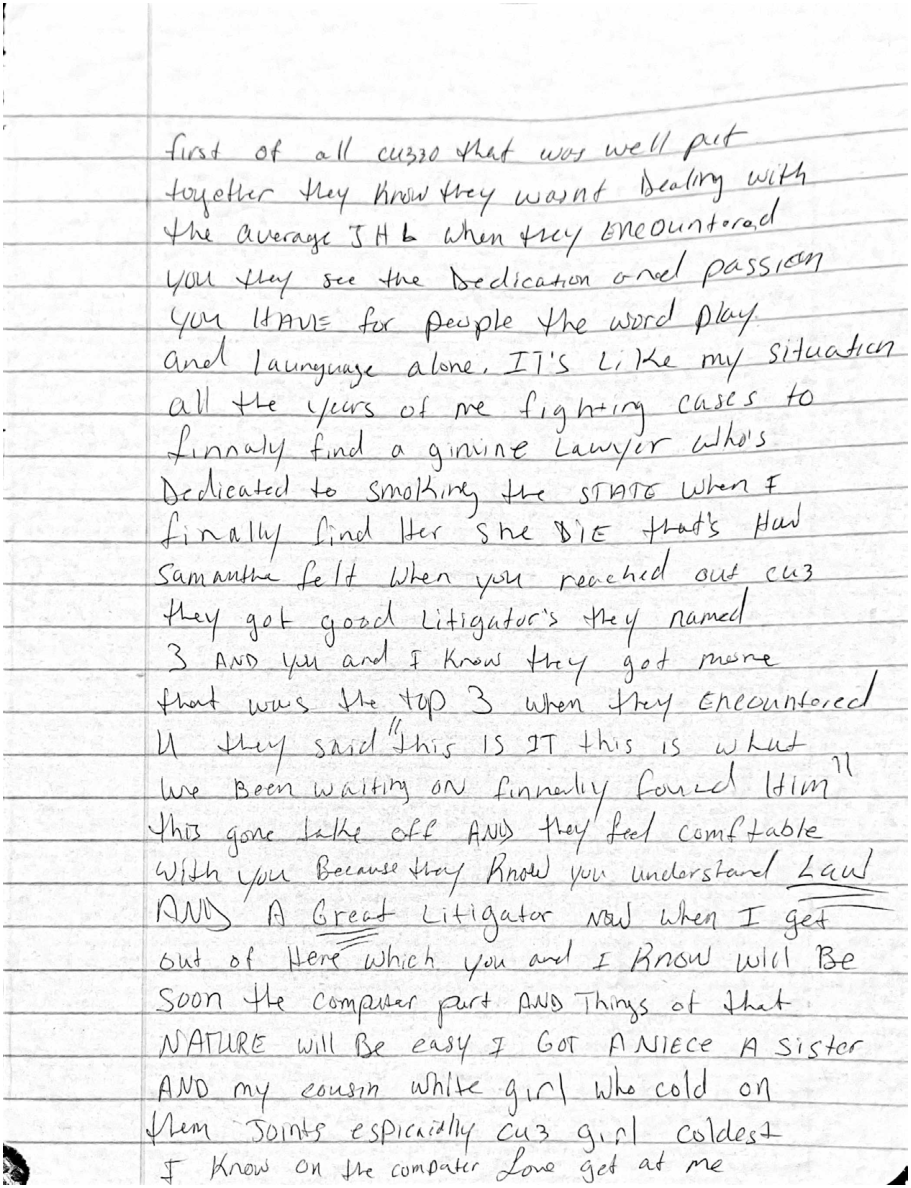 first of all cuzzo that was well put
together they know they wasnt Dealing with
the average JHL when they ENCOUntered
you they see the Dedication and passion
you HAVE for people the word play.
and launguage alone. IT's Like my situation
all the years of me fighting cases to
finnaly find a ginuine Lawyer who's
Dedicated to smoking the STATE when I
finally find Her she DiE that's How
Samantha felt when you reached out cuz
they got good Litigator's they named
3 AND you and I know they got more
that was the top 3 when they ENCOUntered
U they said "this IS IT this is what
we BEEN waiting ON finnally found Him"
this gone take off AND they feel comftable
with you Because they Know you understand Law
AND A Great Litigator Now when I get
out of Here which you and I Know will Be
Soon the computer part AND Things of that
NATURE will Be easy I GOT A NIECE A Sister
AND my cousin white girl who cold on
them Joints espicially cuz girl coldest
I Know on the computer Love get at me